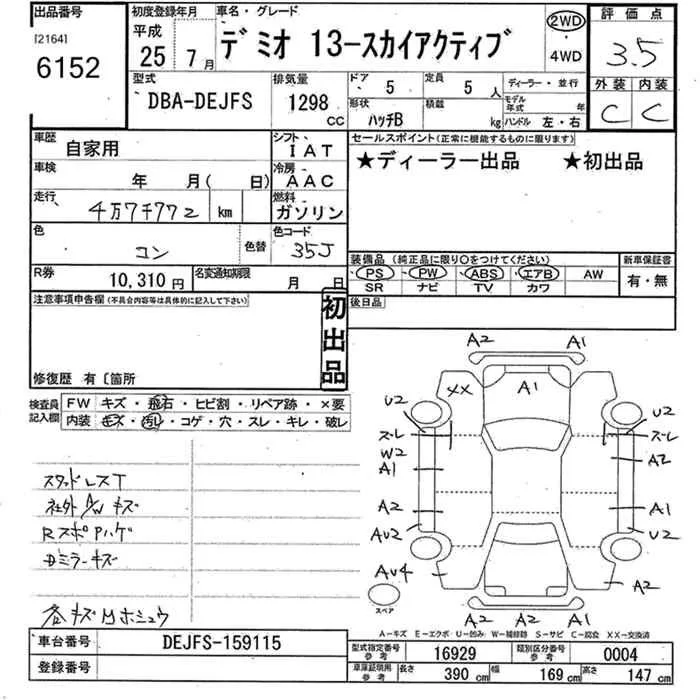 出品番号 初度登録年月 車名・グレード 2WD 評価点
[2164] 平成 デミオ 13-スカイアクティブ 3.5
6152 25年 7月 4WD 外装 内装
型式 排気量 ドア 5 定員 5人 ディーラー・並行 C C
DBA-DEJFS 1298CC 形状 ハッチB 積載 kg モデル年式 年
ハンドル 左・右
車歴 自家用 シフト IAT セールスポイント(正常に機能するものに限ります)
車検 年 月( 日) 冷房 AAC ★ディーラー出品 ★初出品
走行 4万7千772 km 燃料 ガソリン
色 コン 色替 色コード 35J
装備品(純正品に限り〇をつけてください) 新車保証書
R券 10,310円 名変通知期限 月 日 PS PW ABS エアB AW 有・無
SR ナビ TV カワ
注意事項申告欄(不具合内容等は具体的に記入して下さい) 初出品 後日品
修復歴 有〔箇所
検査員記入欄 FW キズ・飛石・ヒビ割・リペア跡・×要
内装 キズ・汚レ・コゲ・穴・スレ・キレ・破レ
スタッドレスT
社外A/Wキズ
RスポPハゲ
ドミラーキズ
各キズMホシュウ
A2 A1
XX A1
U2 U2
スーレ スーレ
W2 A2
A1
A2 A1
AU2 U2
AU4 A2
スペア A2 A1
A-キズ E-エクボ U-凹み W-補修跡 S-サビ C-腐食 XX-交換済
車台番号 DEJFS-159115 型式指定番号 参考 16929 類別区分番号 参考 0004
登録番号 車庫証明用 参考 長さ 390cm 幅 169cm 高さ 147cm